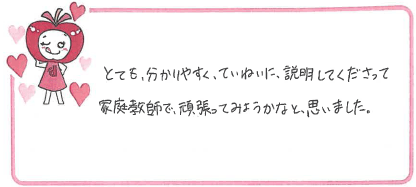 とても、分かりやすく、ていねいに、説明してくださって
家庭教師で、頑張ってみようかなと、思いました。